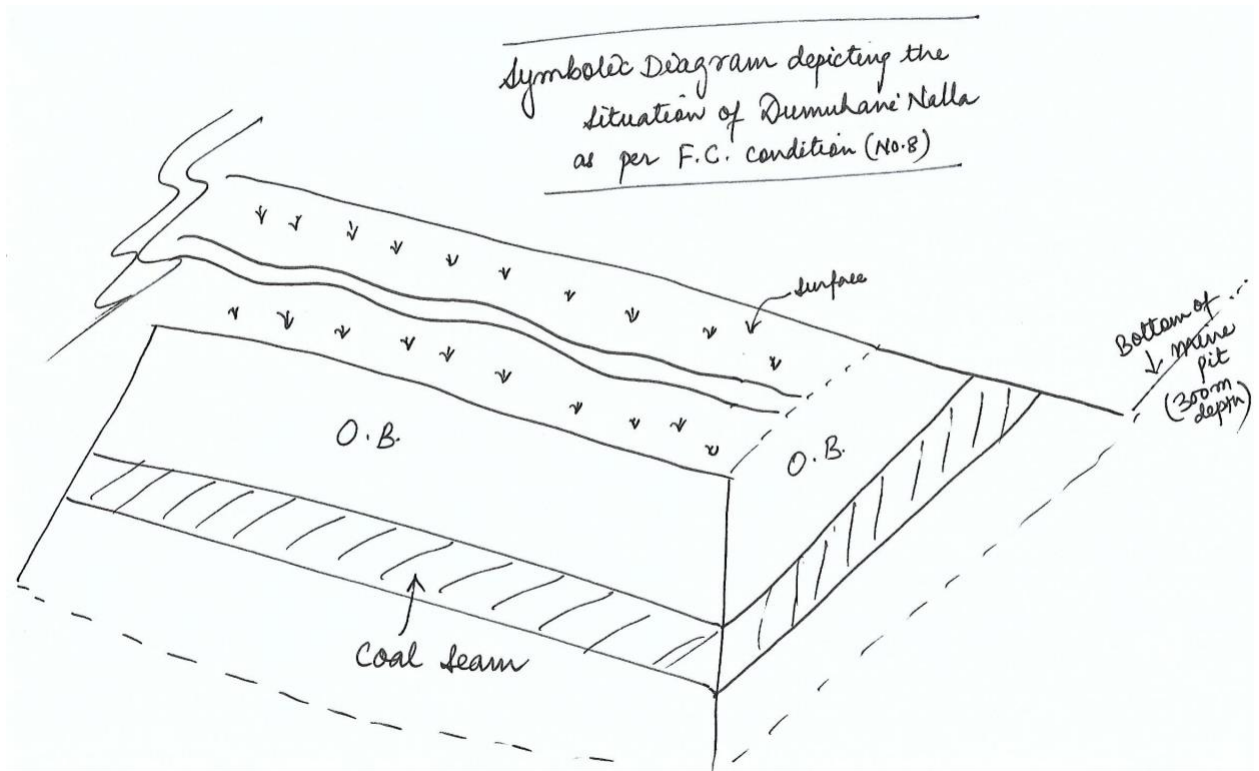 Symbolic Diagram depicting the
situation of Dumuhani Nalla
as per F.C. condition (No.8)
Surface
Bottom of
mine
pit
(300m
depth)
O.B.
O.B.
Coal Seam